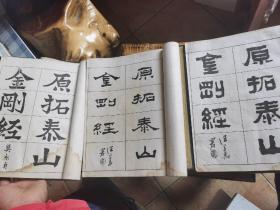 原拓泰山
金剛經
原拓泰山
金剛經
原拓泰山
金剛經